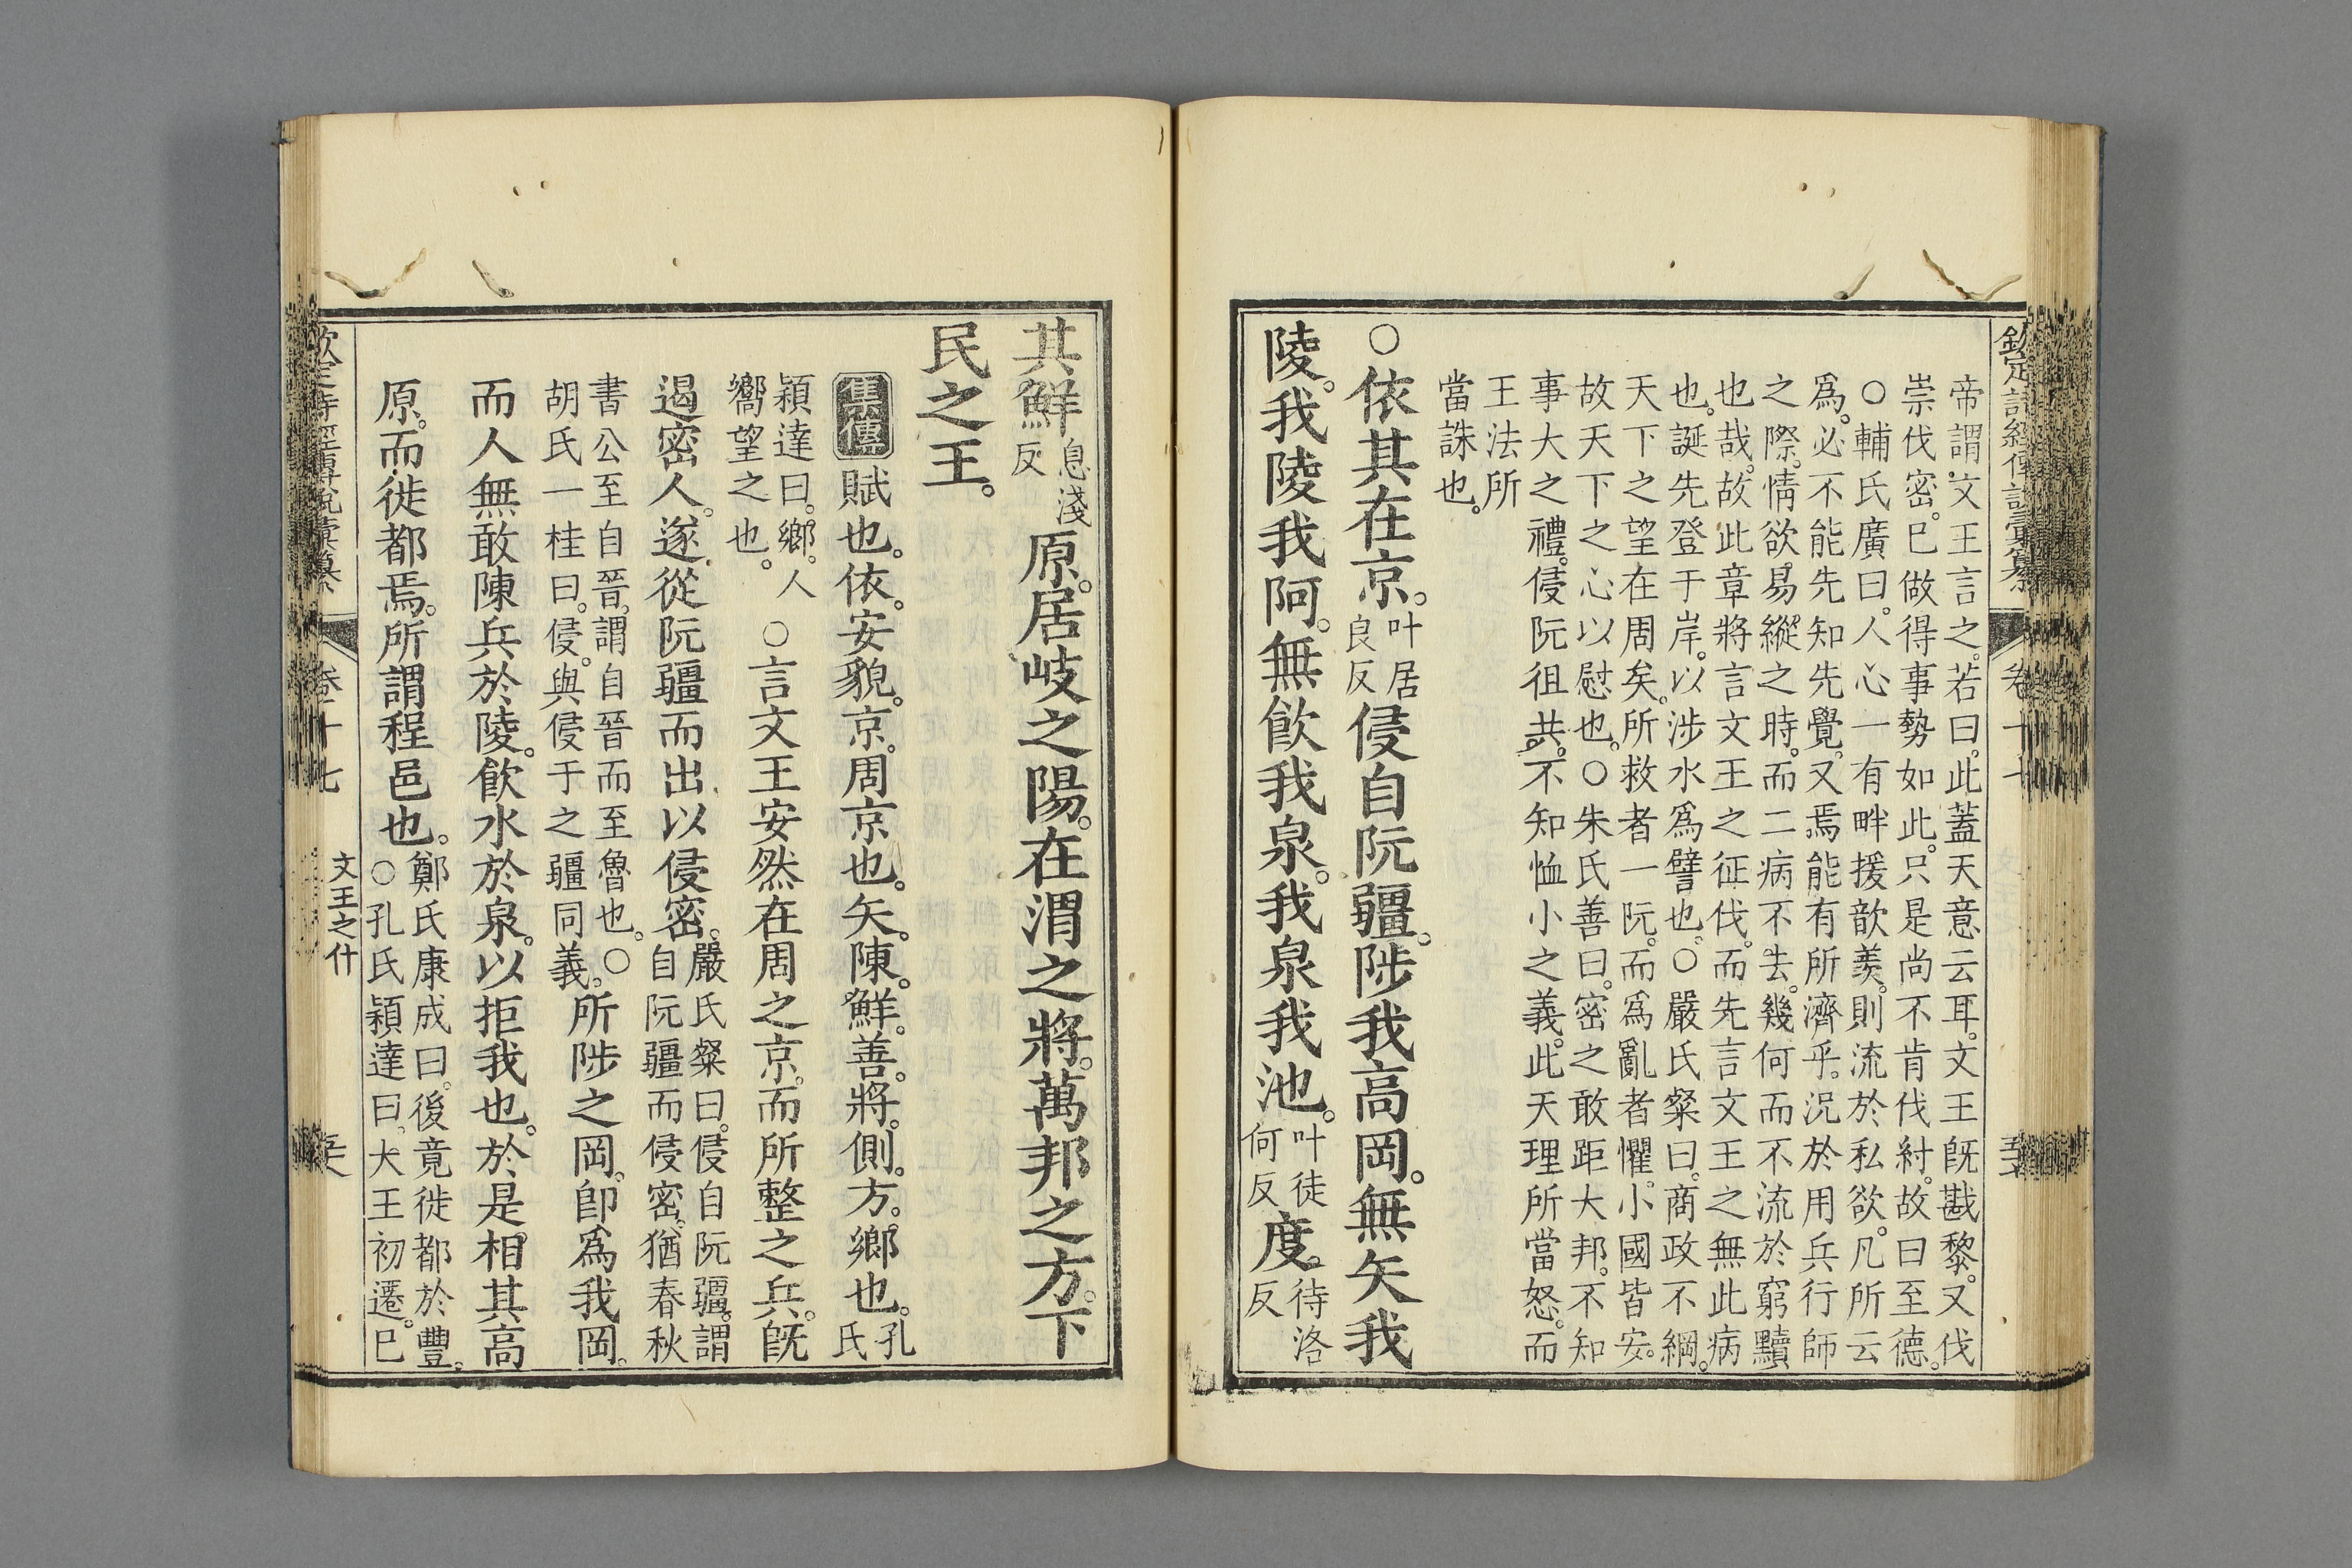 欽定詩經傳說彙纂 卷十七
帝謂文王言之。若曰。此蓋天意云耳。文王旣戡黎。又伐
崇伐密。已做得事勢如此。只是尚不肯伐紂。故曰至德。
○輔氏廣曰。人心一有畔援歆羨。則流於私欲。凡所云
爲。必不能先知先覺。又焉能有所濟乎。況於用兵行師
之際。情欲易縱之時。而二病不去。幾何而不流於窮黷
也哉。故此章將言文王之征伐。而先言文王之無此病
也。誕先登于岸。以涉水爲譬也。○嚴氏粲曰。商政不綱。
天下之望在周矣。所救者一阮。而爲亂者懼。小國皆安。
故天下之心以慰也。○朱氏善曰。密之敢距大邦。不知
事大之禮。侵阮徂共。不知恤小之義。此天理所當怒。而
王法所
當誅也。
○依其在京。叶居良反侵自阮疆。陟我高岡。無矢我
陵。我陵我阿。無飮我泉。我泉我池。叶徒何反度。待洛反
其鮮息淺反原。居岐之陽。在渭之將。萬邦之方。下
民之王。
集傳賦也。依。安貌。京。周京也。矢。陳。鮮。善。將。側。方。鄉也。孔氏
穎達曰。鄉。人嚮望之也。○言文王安然在周之京。而所整之兵。旣
遏密人。遂從阮疆而出以侵密。嚴氏粲曰。侵自阮疆。謂自阮疆而侵密。猶春秋
書公至自晉。謂自晉而至魯也。○胡氏一桂曰。侵。與侵于之疆同義。所陟之岡。卽爲我岡。
而人無敢陳兵於陵。飮水於泉。以拒我也。於是相其高
原。而徙都焉。所謂程邑也。鄭氏康成曰。後竟徙都於豐。○孔氏穎達曰。大王初遷。已
卷十七 文王之什